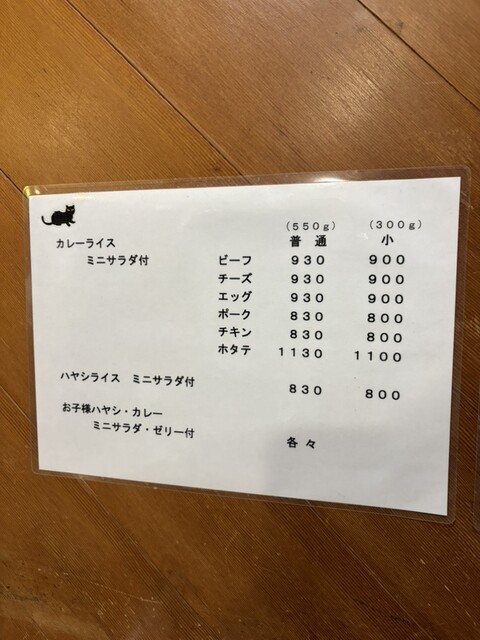 （５５０ｇ） （３００ｇ）
カレーライス 普 通 小
ミニサラダ付 ビーフ ９３０ ９００
チーズ ９３０ ９００
エッグ ９３０ ９００
ポーク ８３０ ８００
チキン ８３０ ８００
ホタテ １１３０ １１００
ハヤシライス ミニサラダ付 ８３０ ８００
お子様ハヤシ・カレー
ミニサラダ・ゼリー付 各々